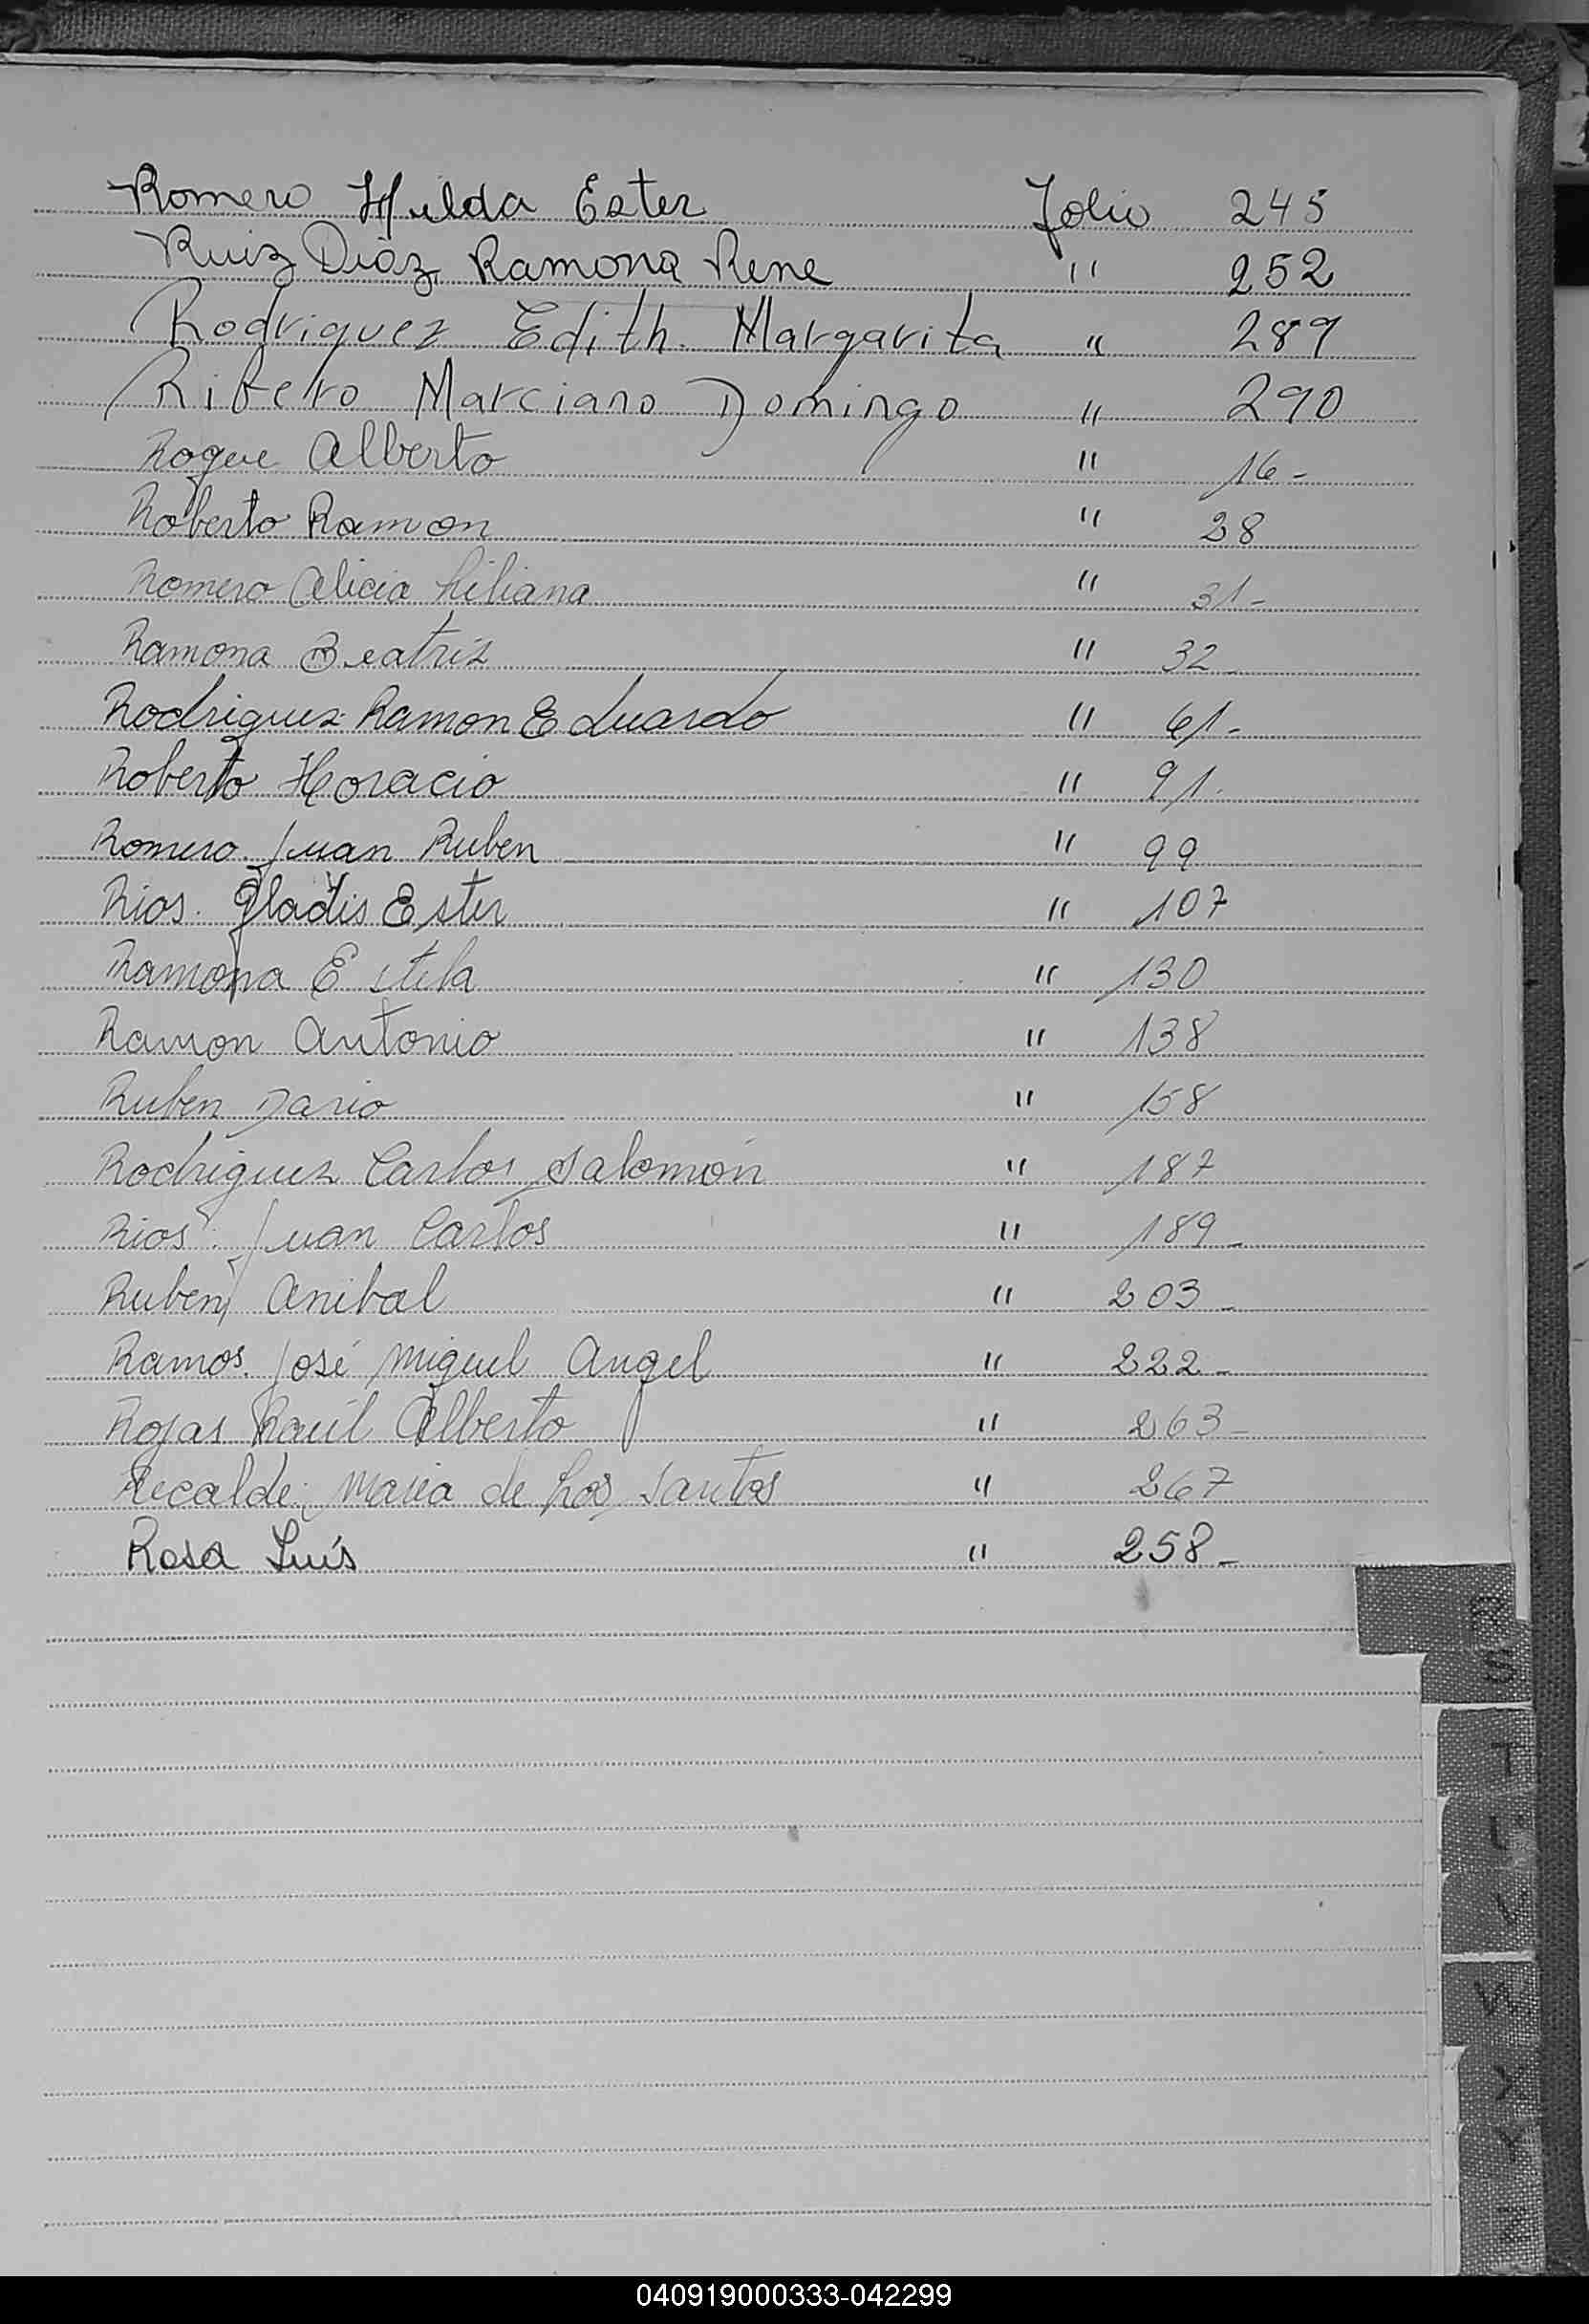 Romero Hilda Ester Folio 245
Ruiz Diaz Ramona Rene " 252
Rodriguez Edith Margarita " 289
Ribero Marciano Domingo " 290
Roque Alberto " 16-
Roberto Ramon " 28
Romero Alicia Liliana " 31-
Ramona Beatriz " 32
Rodriguez Ramon Eduardo " 61-
Roberto Horacio " 91.
Romero. Juan Ruben " 99
Rios. Gladis Ester " 107
Ramona Estela " 130
Ramon Antonio " 138
Ruben Dario " 158
Rodriguez Carlos Salomón " 187
Rios. Juan Carlos " 189-
Ruben Anibal " 203-
Ramos. José Miguel Angel " 222-
Rojas Raúl Alberto " 263-
Recalde, Maria de Los Santos " 267
Rosa Luis " 258-
R
S
T
U
V
W
X
Y
Z
040919000333-042299